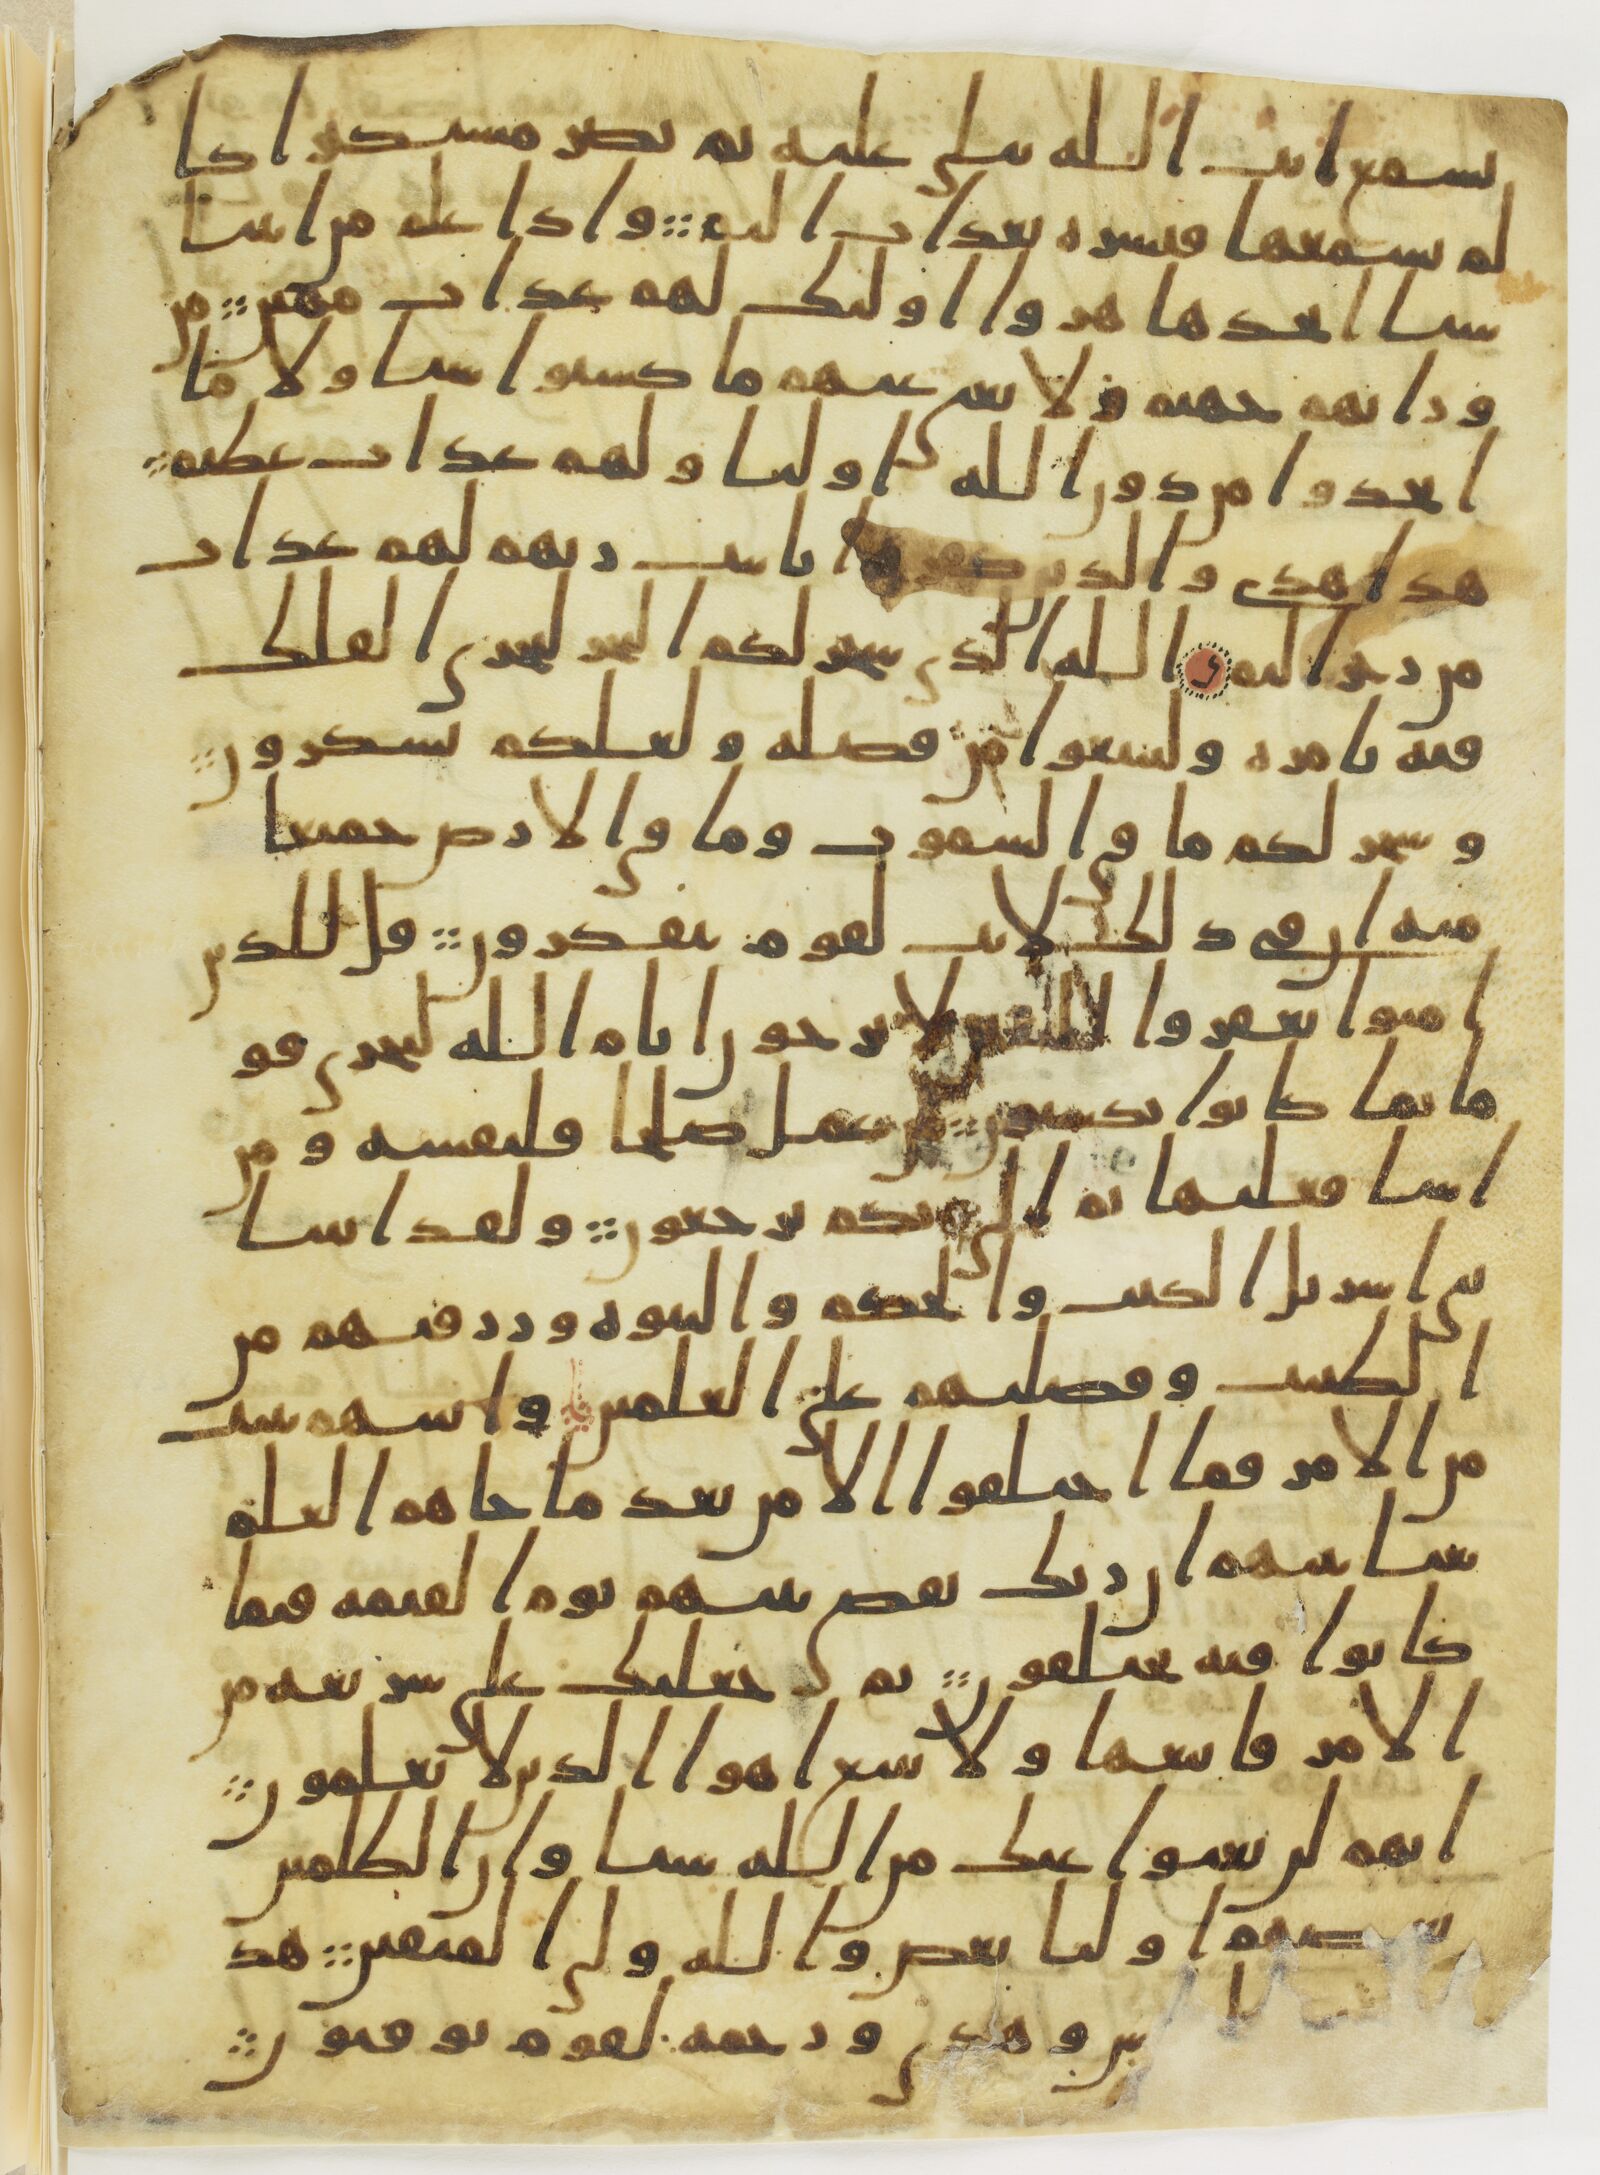 يسمع ايت الله تتلى عليه ثم يصر مستكبرا كا
لم يسمعها فبشره بعذاب اليم ۞ واذا علم من ايتنا
شيا اتخذها هزوا اولئك لهم عذاب مهين ۞ من
ورائهم جهنم ولا يغني عنهم ما كسبوا شيا ولا ما
اتخذوا من دون الله اوليا ولهم عذاب عظيم ۞
هذا هدى والذين كفروا بايت ربهم لهم عذاب
من رجز اليم ى الله الذي سخر لكم البحر لتجري الفلك
فيه بامره ولتبتغوا من فضله ولعلكم تشكرون ۞
وسخر لكم ما في السموت وما في الارض جميعا
منه ان في ذلك لايت لقوم يتفكرون ۞ قل للذين
امنوا يغفروا للذين لا يرجون ايام الله ليجزي قو
ما بما كانوا يكسبون ۞ من عمل صلحا فلنفسه ومن
اسا فعليها ثم الى ربكم ترجعون ۞ ولقد اتينا
بني اسريل الكتب والحكم والنبوه ورزقنهم من
الطيبت وفضلنهم على العلمين واتينهم بينت
من الامر فما اختلفوا الا من بعد ما جاهم العلم
بغيا بينهم ان ربك يقضي بينهم يوم القيمه فيما
كانوا فيه يختلفون ۞ ثم جعلنك على شريعه من
الامر فاتبعها ولا تتبع اهوا الذين لا يعلمون ۞
انهم لن يغنوا عنك من الله شيا وان الظلمين
بعضهم اوليا بعض والله ولي المتقين ۞ هذ
ا وهدى ورحمه لقوم يوقنون ۞